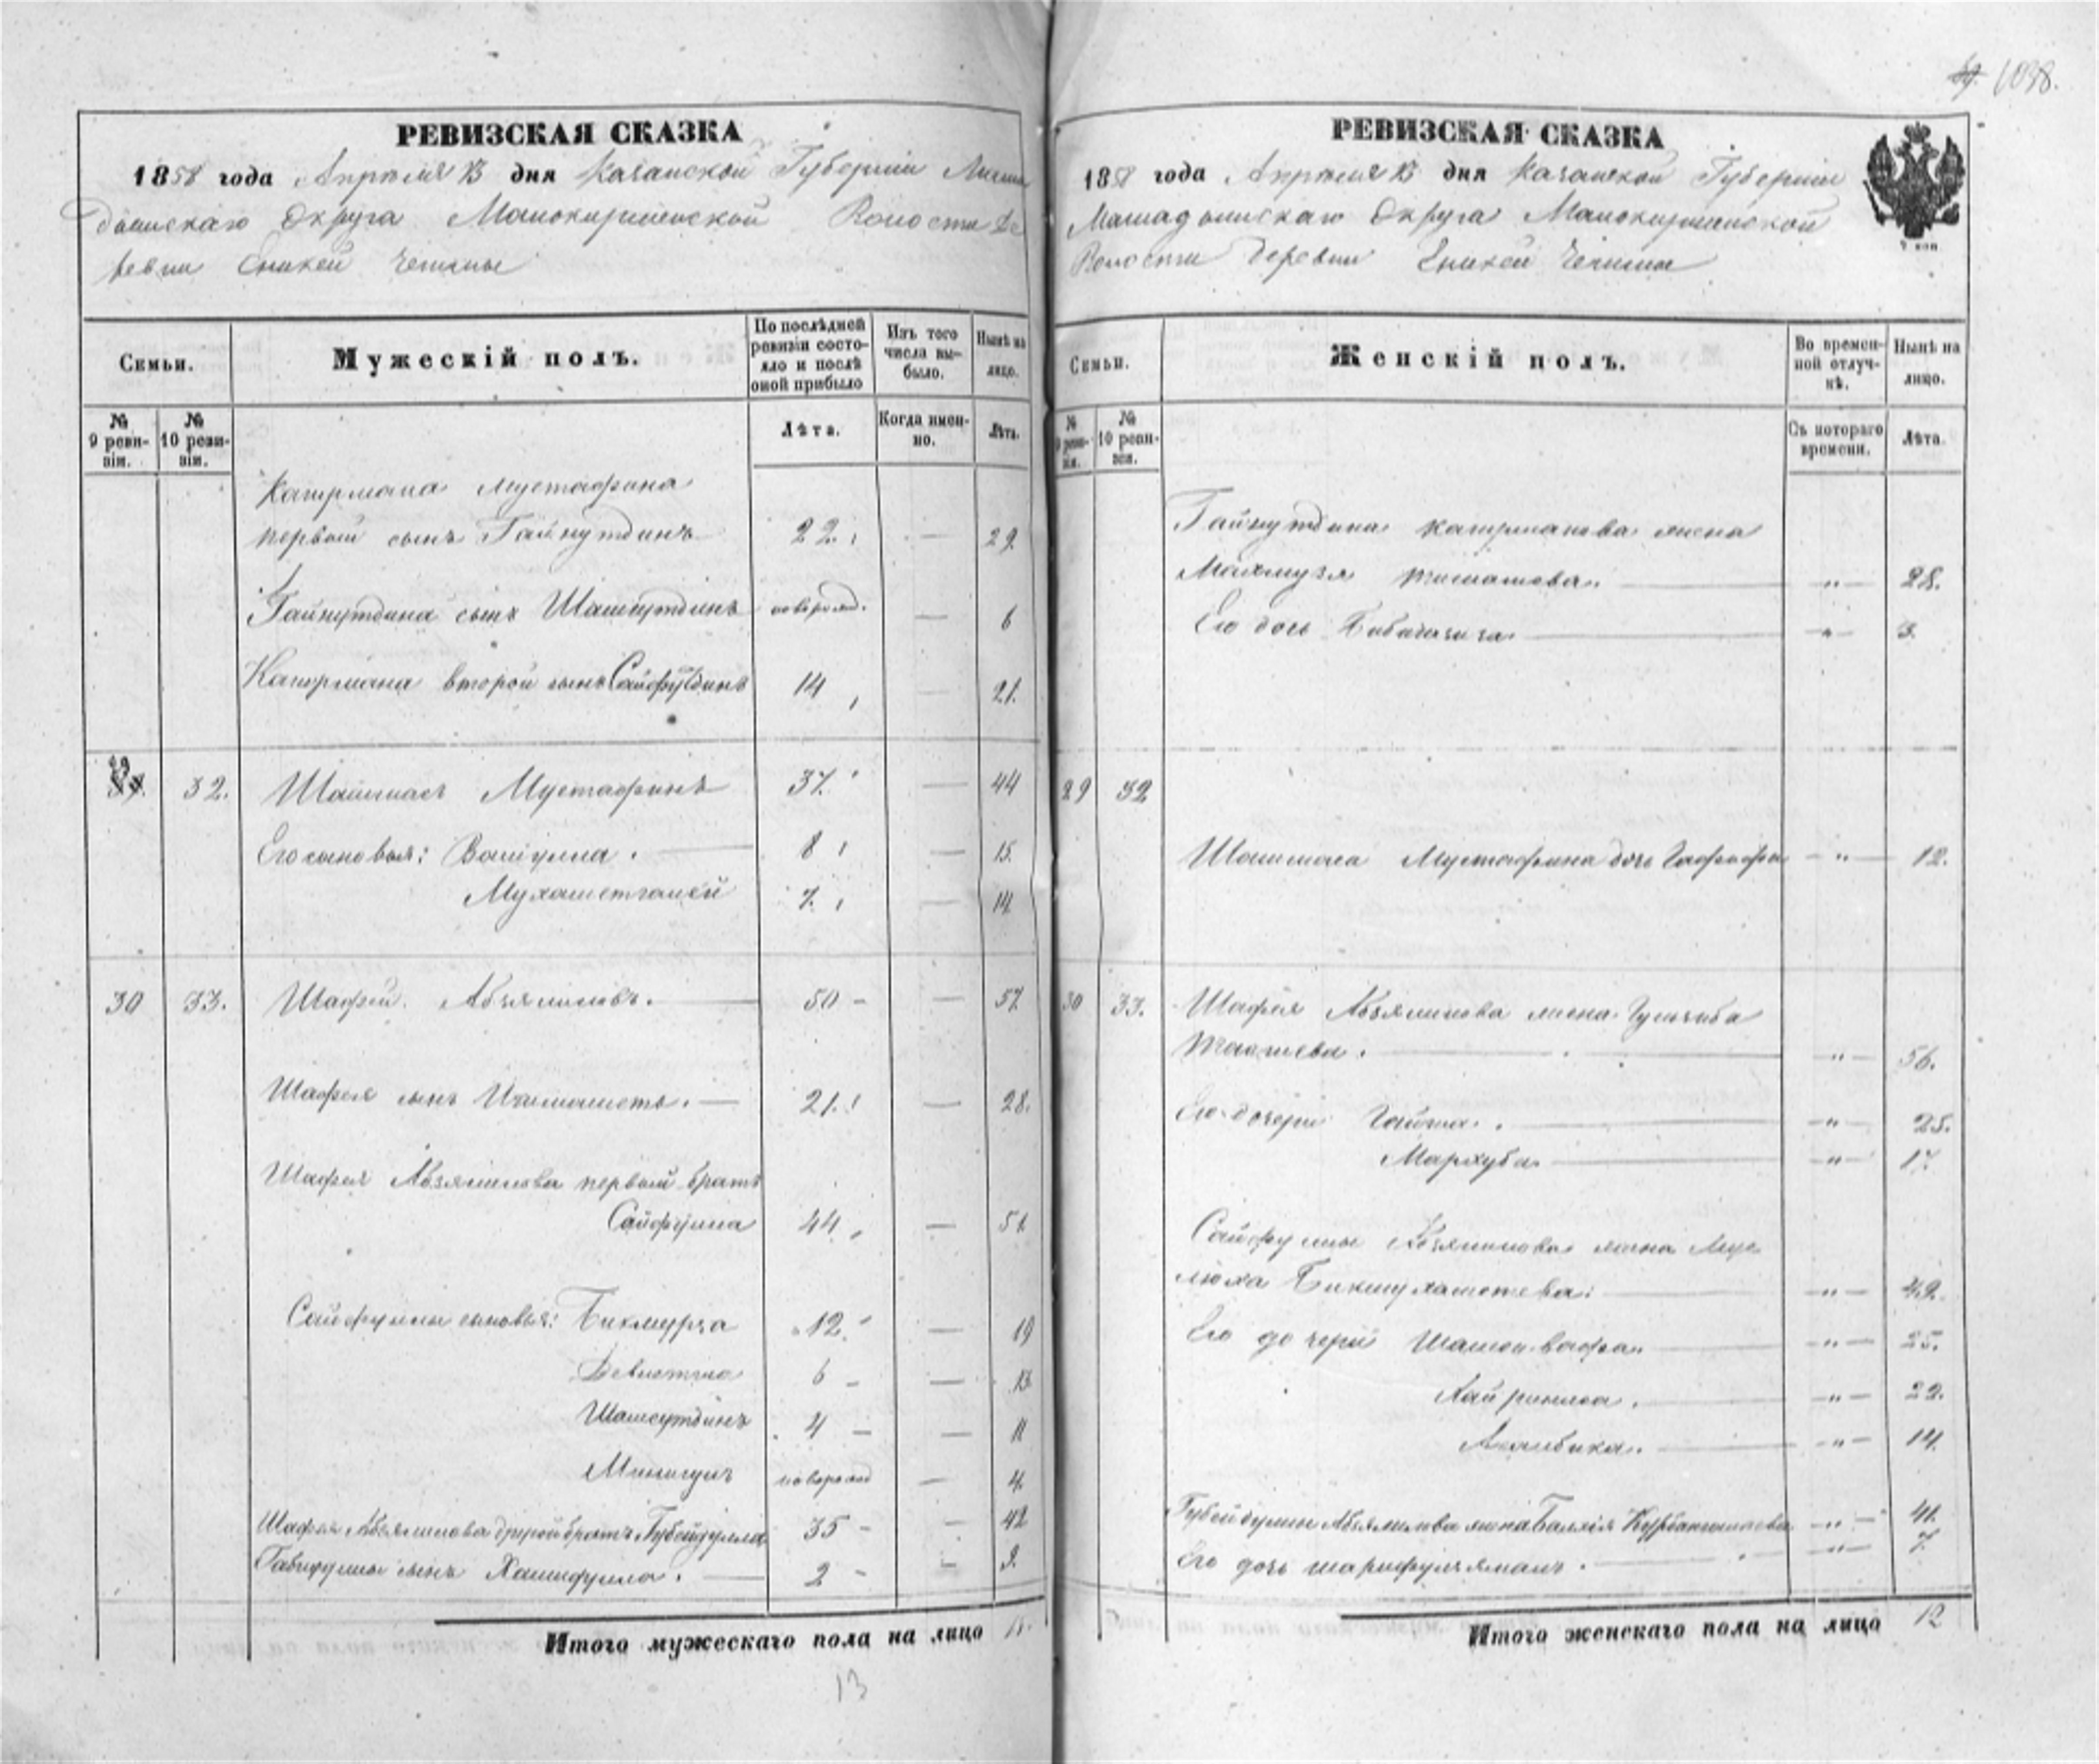 1038.
РЕВИЗСКАЯ СКАЗКА
1858 года Апреля 13 дня Казанской Губерніи Мама
дышскаго Округа Малокирменской Волости Де
ревни Еникей Чешмы
Семьи.
Мужескій полъ.
По послѣдней ревизіи состояло и послѣ оной прибыло
Изъ того числа выбыло.
Нынѣ на лицо.
№ 9 ревизіи.
№ 10 ревизіи.
Лѣта.
Когда именно.
Лѣта.
Катрмана Мустафина
первый сынъ Гайнутдинъ 22. — 29
Гайнутдина сынъ Шамсутдинъ новорожд. — 6
Катрмана второй сынъ Сайфутдинъ 14 — 21.
29 32. Шаимасъ Мустафинъ 37. — 44
Его сыновья: Валіулла. 8 — 15
Мухаметгалей 7. — 14
30 33. Шафей Абзялиловъ. 50 — 57
Шафея сынъ Ишмаметь. 21. — 28.
Шафея Абзялилова первый братъ
Сайфулла 44 — 51
Сайфуллы сыновья: Бикмурза 12. — 19
Девлетша 6 — 13
Шамсутдинъ 4 — 11
Минигулъ новорожд — 4.
Шафея Абзялилова другой братъ Губейдулла 35 — 42
Габидуллы сынъ Хашифулла. 2 — 9.
Итого мужескаго пола на лицо
13
РЕВИЗСКАЯ СКАЗКА
1858 года Апреля 13 дня Казанской Губерніи
Мамадышскаго Округа Малокирменской
Волости Деревни Еникей Чешмы
4 коп.
Семьи.
Женскій полъ.
Во временной отлучкѣ.
Нынѣ на лицо.
№ 9 ревизіи.
№ 10 ревизіи.
Съ котораго времени.
Лѣта.
Гайнутдина Катрманова жена
Махмузя „ — 28.
Его дочь „ — 3.
29 32
Шаимаса Мустафина дочь — „ — 12.
30 33. Шафея Абзялилова жена
„ — 56.
Его дочери „ — 25.
Мархуба „ — 17
Сайфуллы Абзялилова жена Мус
люха Бикмухаметева: „ — 49.
Его дочери „ — 25.
„ — 22.
Акалбика. „ — 14.
Губейдуллы Абзялилова жена Балхія „ — 41.
Его дочь шарифулзяманъ. „ — 7.
Итого женскаго пола на лицо 12